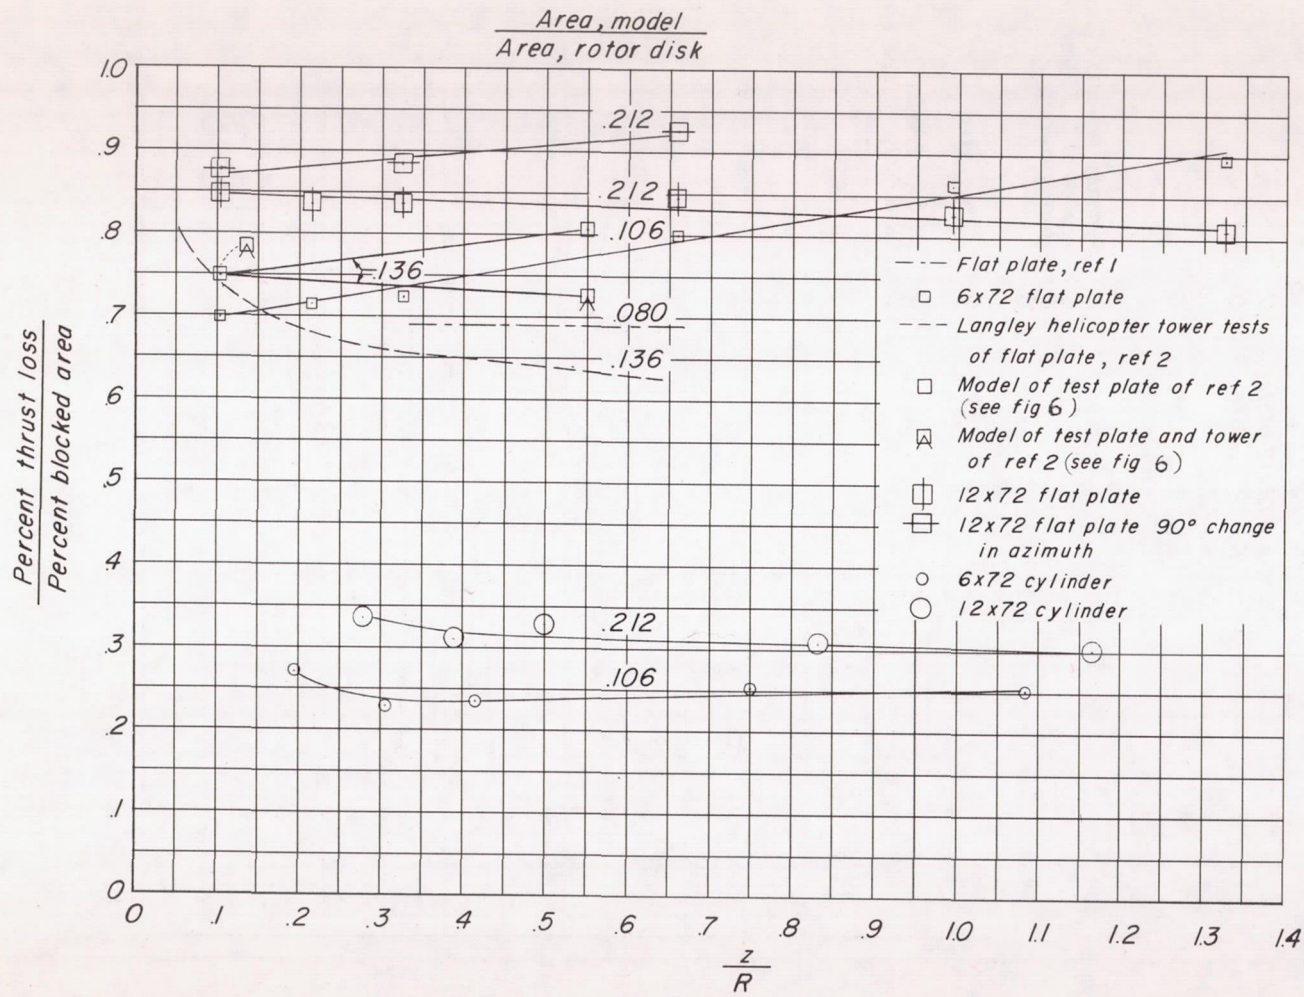 Area, model
Area, rotor disk
1.0
.9
.8
.7
.6
.5
.4
.3
.2
.1
0
Percent thrust loss
Percent blocked area
.212
.212
.106
.136
.080
.136
.212
.106
Flat plate, ref 1
6x72 flat plate
Langley helicopter tower tests
of flat plate, ref 2
Model of test plate of ref 2
(see fig 6)
Model of test plate and tower
of ref 2 (see fig 6)
12x72 flat plate
12x72 flat plate 90° change
in azimuth
6x72 cylinder
12x72 cylinder
0 .1 .2 .3 .4 .5 .6 .7 .8 .9 1.0 1.1 1.2 1.3 1.4
z
R